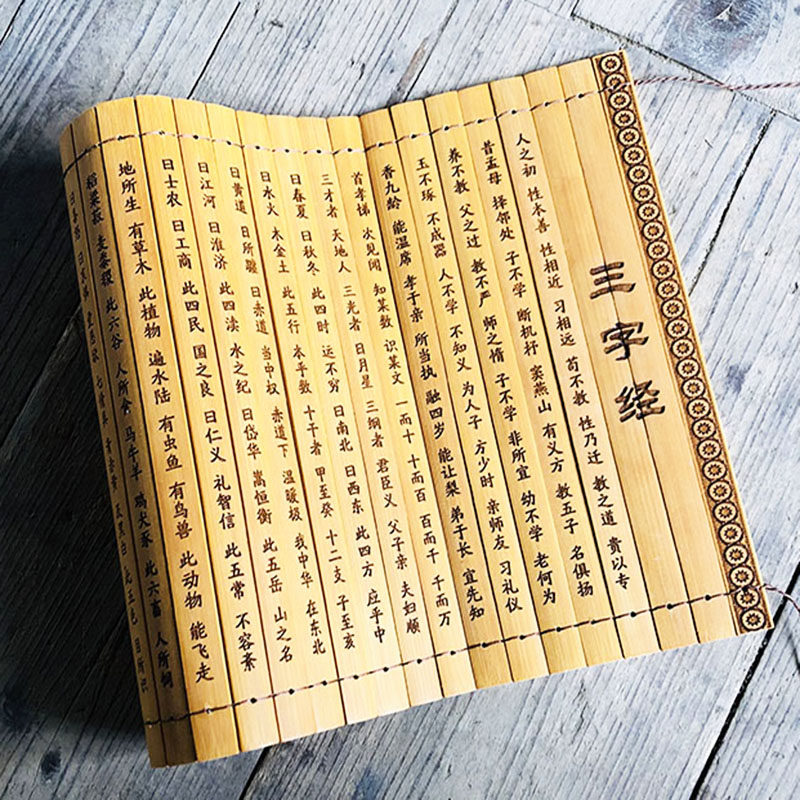 三字经
人之初 性本善 性相近 习相远 苟不教 性乃迁 教之道 贵以专
昔孟母 择邻处 子不学 断机杼 窦燕山 有义方 教五子 名俱扬
养不教 父之过 教不严 师之惰 子不学 非所宜 幼不学 老何为
玉不琢 不成器 人不学 不知义 为人子 方少时 亲师友 习礼仪
香九龄 能温席 孝于亲 所当执 融四岁 能让梨 弟于长 宜先知
首孝悌 次见闻 知某数 识某文 一而十 十而百 百而千 千而万
三才者 天地人 三光者 日月星 三纲者 君臣义 父子亲 夫妇顺
曰春夏 曰秋冬 此四时 运不穷 曰南北 曰西东 此四方 应乎中
曰水火 木金土 此五行 本乎数 十干者 甲至癸 十二支 子至亥
曰黄道 日所躔 曰赤道 当中权 赤道下 温暖极 我中华 在东北
曰江河 曰淮济 此四渎 水之纪 曰岱华 嵩恒衡 此五岳 山之名
曰士农 曰工商 此四民 国之良 曰仁义 礼智信 此五常 不容紊
地所生 有草木 此植物 遍水陆 有虫鱼 有鸟兽 此动物 能飞走
稻粱菽 麦黍稷 此六谷 人所食 马牛羊 鸡犬豕 此六畜 人所饲
曰喜怒 七情具 青赤黄 及黑白 此五色 目所识